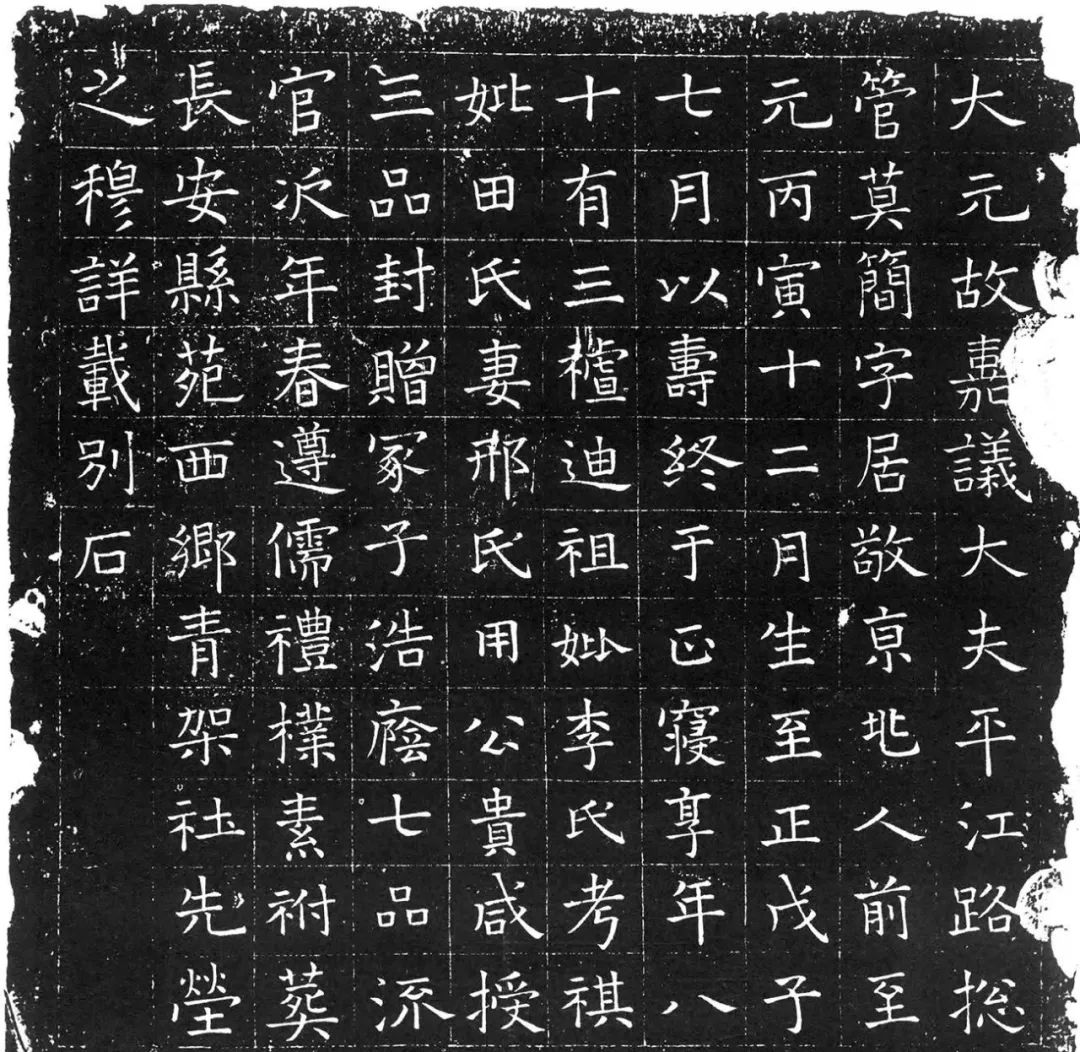 大元故嘉議大夫平江路捴
管莫簡字居敬亰北人前至
元丙寅十二月生至正戊子
七月以壽終于正寢享年八
十有三迪祖妣李氏考祺
妣田氏妻邢氏用公貴咸授
三品封贈冢子浩廕七品流
官次年春遵儒禮樸素祔葬
長安縣苑西鄉青架社先塋
之穆詳載別石